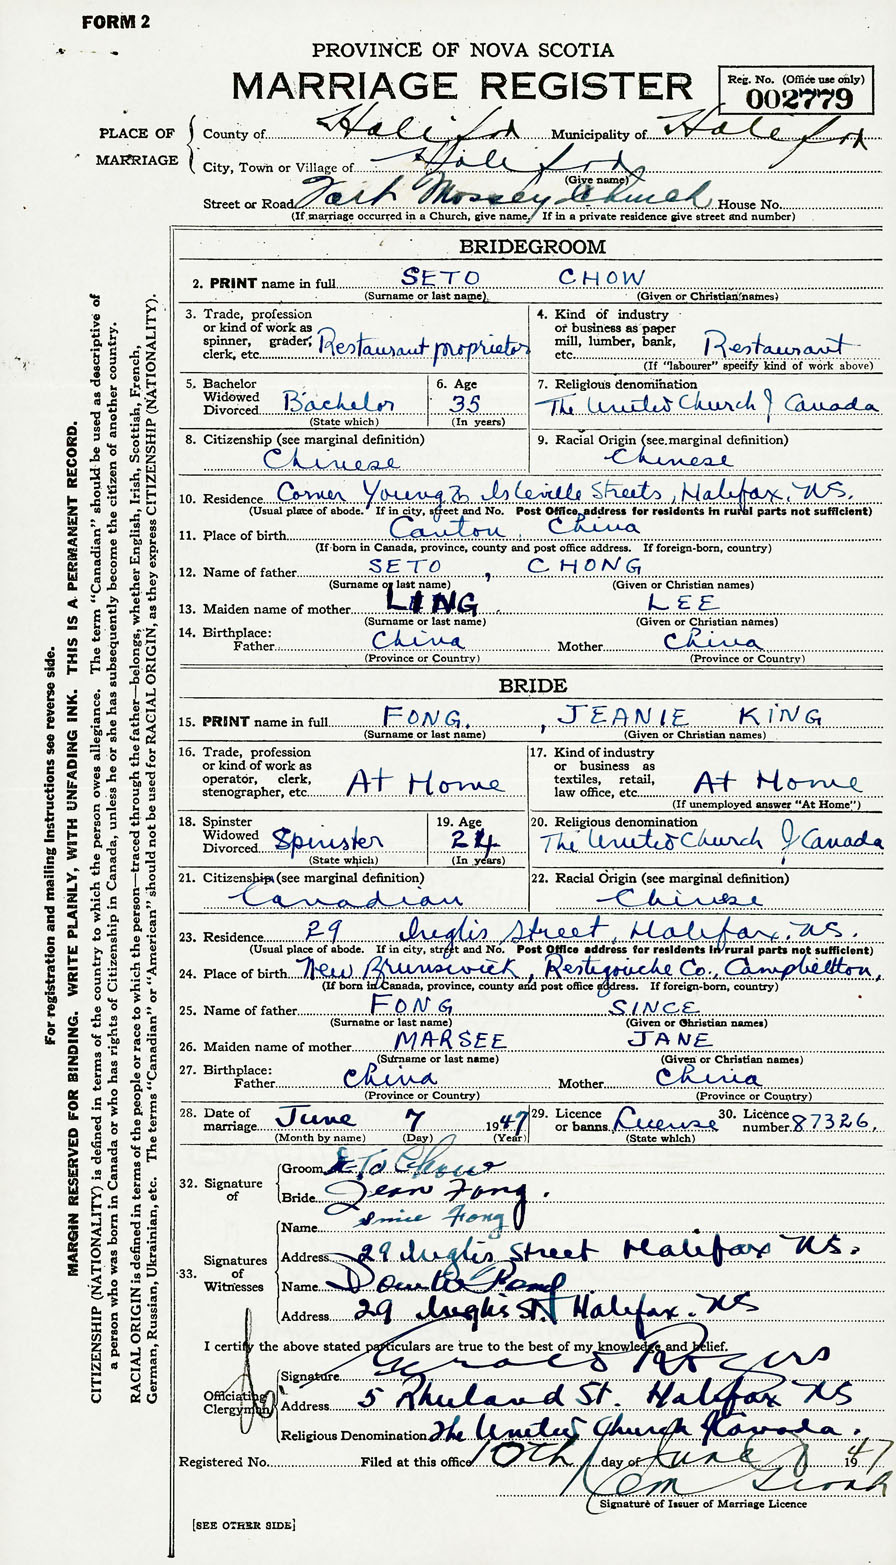 FORM 2
PROVINCE OF NOVA SCOTIA
MARRIAGE REGISTER
Reg. No. (Office use only)
002779
PLACE OF MARRIAGE
County of Halifax Municipality of Halifax
City, Town or Village of Halifax
(Give name)
Street or Road Fort Massey Church House No.
(If marriage occurred in a Church, give name. If in a private residence give street and number)
BRIDEGROOM
2. PRINT name in full SETO CHOW
(Surname or last name) (Given or Christian names)
3. Trade, profession or kind of work as spinner, grader, clerk, etc. Restaurant proprietor
4. Kind of industry or business as paper mill, lumber, bank, etc. Restaurant
(If "labourer" specify kind of work above)
5. Bachelor Widowed Divorced Bachelor
(State which)
6. Age 35
(In years)
7. Religious denomination
The United Church of Canada
8. Citizenship (see marginal definition)
Chinese
9. Racial Origin (see marginal definition)
Chinese
10. Residence Corner Young & Isleville Streets, Halifax. N.S.
(Usual place of abode. If in city, street and No. Post Office address for residents in rural parts not sufficient)
11. Place of birth Canton, China
(If born in Canada, province, county and post office address. If foreign-born, country)
12. Name of father SETO, CHONG
(Surname or last name) (Given or Christian names)
13. Maiden name of mother LING. LEE
(Surname or last name) (Given or Christian names)
14. Birthplace:
Father China Mother China
(Province or Country) (Province or Country)
BRIDE
15. PRINT name in full FONG, JEANIE KING
(Surname or last name) (Given or Christian names)
16. Trade, profession or kind of work as operator, clerk, stenographer, etc. At Home
17. Kind of industry or business as textiles, retail, law office, etc. At Home
(If unemployed answer "At Home")
18. Spinster Widowed Divorced Spinster
(State which)
19. Age 24
(In years)
20. Religious denomination
The United Church of Canada
21. Citizenship (see marginal definition)
Canadian
22. Racial Origin (see marginal definition)
Chinese
23. Residence 29 Inglis Street, Halifax. N.S.
(Usual place of abode. If in city, street and No. Post Office address for residents in rural parts not sufficient)
24. Place of birth New Brunswick, Restigouche Co., Campbellton,
(If born in Canada, province, county and post office address. If foreign-born, country)
25. Name of father FONG SINCE
(Surname or last name) (Given or Christian names)
26. Maiden name of mother MARSEE JANE
(Surname or last name) (Given or Christian names)
27. Birthplace:
Father China Mother China
(Province or Country) (Province or Country)
28. Date of marriage June 7 1947
(Month by name) (Day) (Year)
29. Licence or banns License
(State which)
30. Licence number 87326.
32. Signature of
Groom Seto Chow
Bride Jean Fong.
33. Signatures of Witnesses
Name Since Fong
Address 29 Inglis Street Halifax N.S.
Name
Address 29 Inglis St. Halifax. N.S
I certify the above stated particulars are true to the best of my knowledge and belief.
Officiating Clergyman
Signature Gerald Rogers
Address 5 Rhuland St. Halifax N S
Religious Denomination The United Church of Canada.
Registered No. Filed at this office 10th day of June 1947
Signature of Issuer of Marriage Licence
[SEE OTHER SIDE]
For registration and mailing instructions see reverse side.
MARGIN RESERVED FOR BINDING. WRITE PLAINLY, WITH UNFADING INK. THIS IS A PERMANENT RECORD.
CITIZENSHIP (NATIONALITY) is defined in terms of the country to which the person owes allegiance. The term "Canadian" should be used as descriptive of
a person who was born in Canada or who has rights of Citizenship in Canada, unless he or she has subsequently become the citizen of another country.
RACIAL ORIGIN is defined in terms of the people or race to which the person—traced through the father—belongs, whether English, Irish, Scottish, French,
German, Russian, Ukrainian, etc. The terms "Canadian" or "American" should not be used for RACIAL ORIGIN, as they express CITIZENSHIP (NATIONALITY).